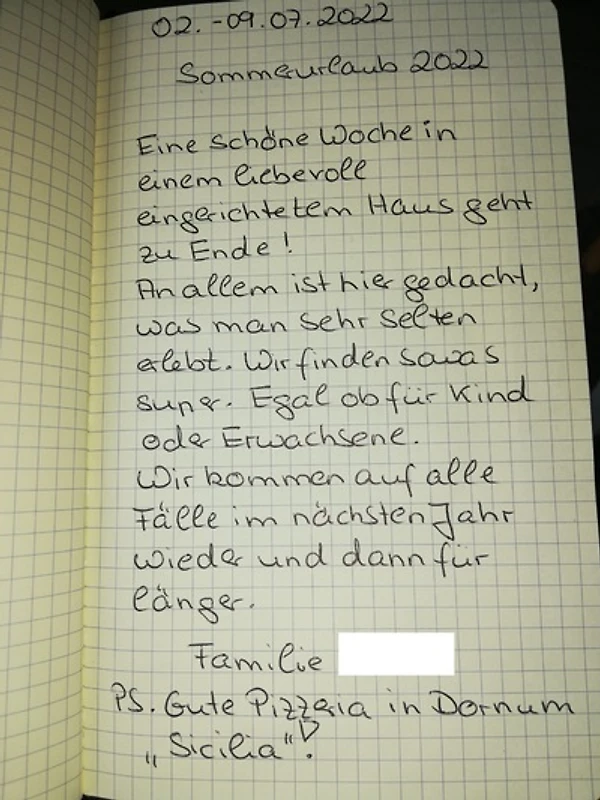 02.-09.07.2022
Sommerurlaub 2022
Eine schöne Woche in
einem liebevoll
eingerichtetem Haus geht
zu Ende!
An allem ist hier gedacht,
was man sehr selten
erlebt. Wir finden sowas
super. Egal ob für Kind
oder Erwachsene.
Wir kommen auf alle
Fälle im nächsten Jahr
wieder und dann für
länger.
Familie
PS. Gute Pizzeria in Dornum
„Sicilia“!